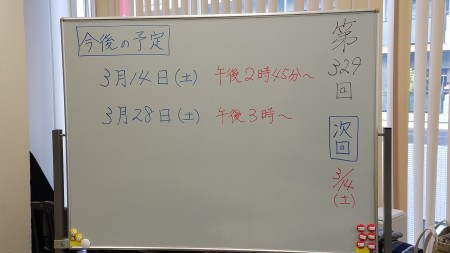 今後の予定
3月14日(土) 午後2時45分～
3月28日(土) 午後3時～
第329回
次回
3/14(土)